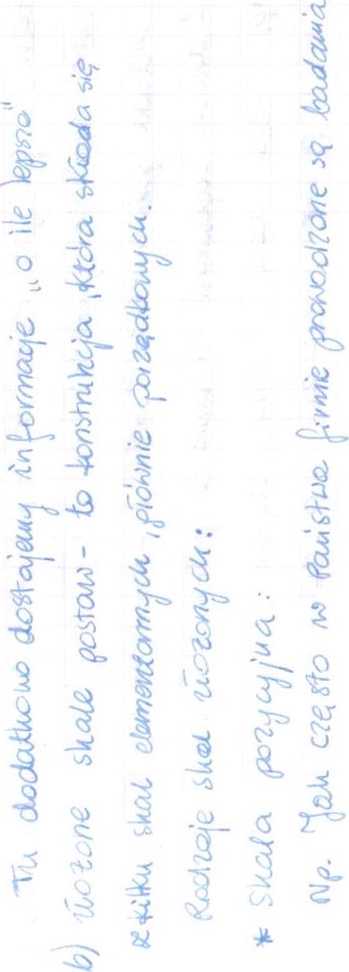 Tu dodatkowo dostajemy informacje „o ile lepsze"
b) złożone skale postaw - to konstrukcja, która składa się
z kilku skal elementarnych, głównie porządkowych.
Rodzaje skal złożonych:
* Skala pozycyjna:
Np. Jak często w Państwa firmie prowadzone są badania